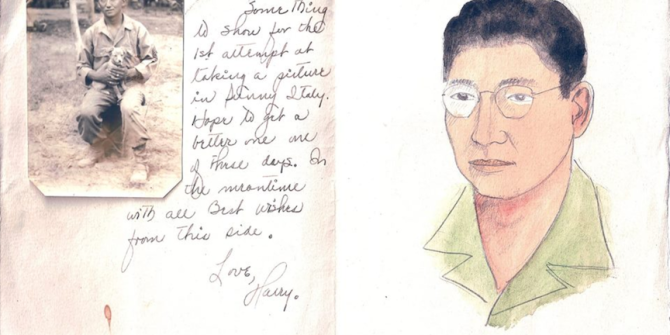 Some Thing
to show for the
1st attempt at
taking a picture
in Sunny Italy.
Hope to get a
better one one
of these days. In
the meantime
with all Best wishes
from this side.
Love,
Harry.